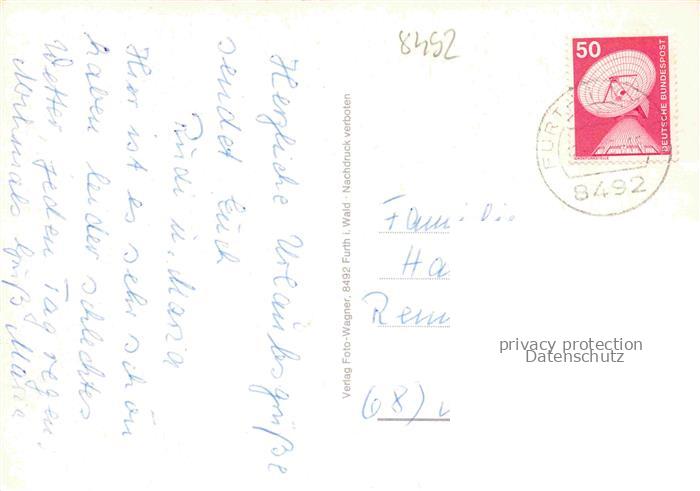 8492
Herzliche Urlaubsgrüße
sendet Euch
Rudi u. Maria
Hier ist es sehr schön
haben leider schlechtes
Wetter, jeden Tag regen,
Nochmals Gruß Maria
Verlag Foto-Wagner, 8492 Furth i. Wald · Nachdruck verboten
50
DEUTSCHE BUNDESPOST
ERDEFUNKSTELLE
FURT
8492
Familie
Ha
Rem
(68)
privacy protection
Datenschutz